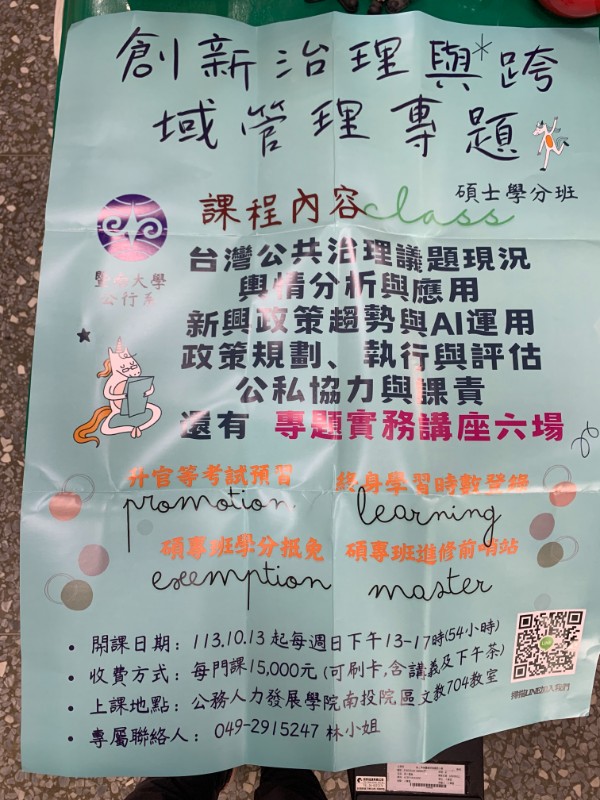 創新治理與*跨
域管理專題
碩士學分班
課程內容class
暨南大學
公行系
台灣公共治理議題現況
輿情分析與應用
新興政策趨勢與AI運用
政策規劃、執行與評估
公私協力與課責
還有 專題實務講座六場
升官等考試預習 終身學習時數登錄
promotion learning
碩專班學分抵免 碩專班進修前哨站
exemption master
• 開課日期：113.10.13起每週日下午13-17時(54小時)
• 收費方式：每門課15,000元(可刷卡,含講義及下午茶)
• 上課地點：公務人力發展學院南投院區文教704教室
• 專屬聯絡人：049-2915247 林小姐
掃描LINE加入我們